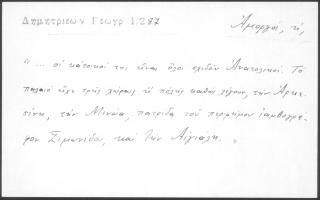 Δημητριέων Γεωγρ 1.287
Ἀμοργοί, τ,
"... οἱ κάτοικοί της εἶναι ὅλοι σχεδὸν Ἀνατολικοί. Τὸ
παλαιὸ εἶχε τρεῖς χώρας ἢ πόλεις καθὼς λέγουν, τὴν Ἀρκε-
σίνη, τὴν Μινώα, πατρίδα τοῦ περιφήμου ἰαμβογρά-
φου Σιμωνίδα, καὶ τὴν Αἰγιάλη.